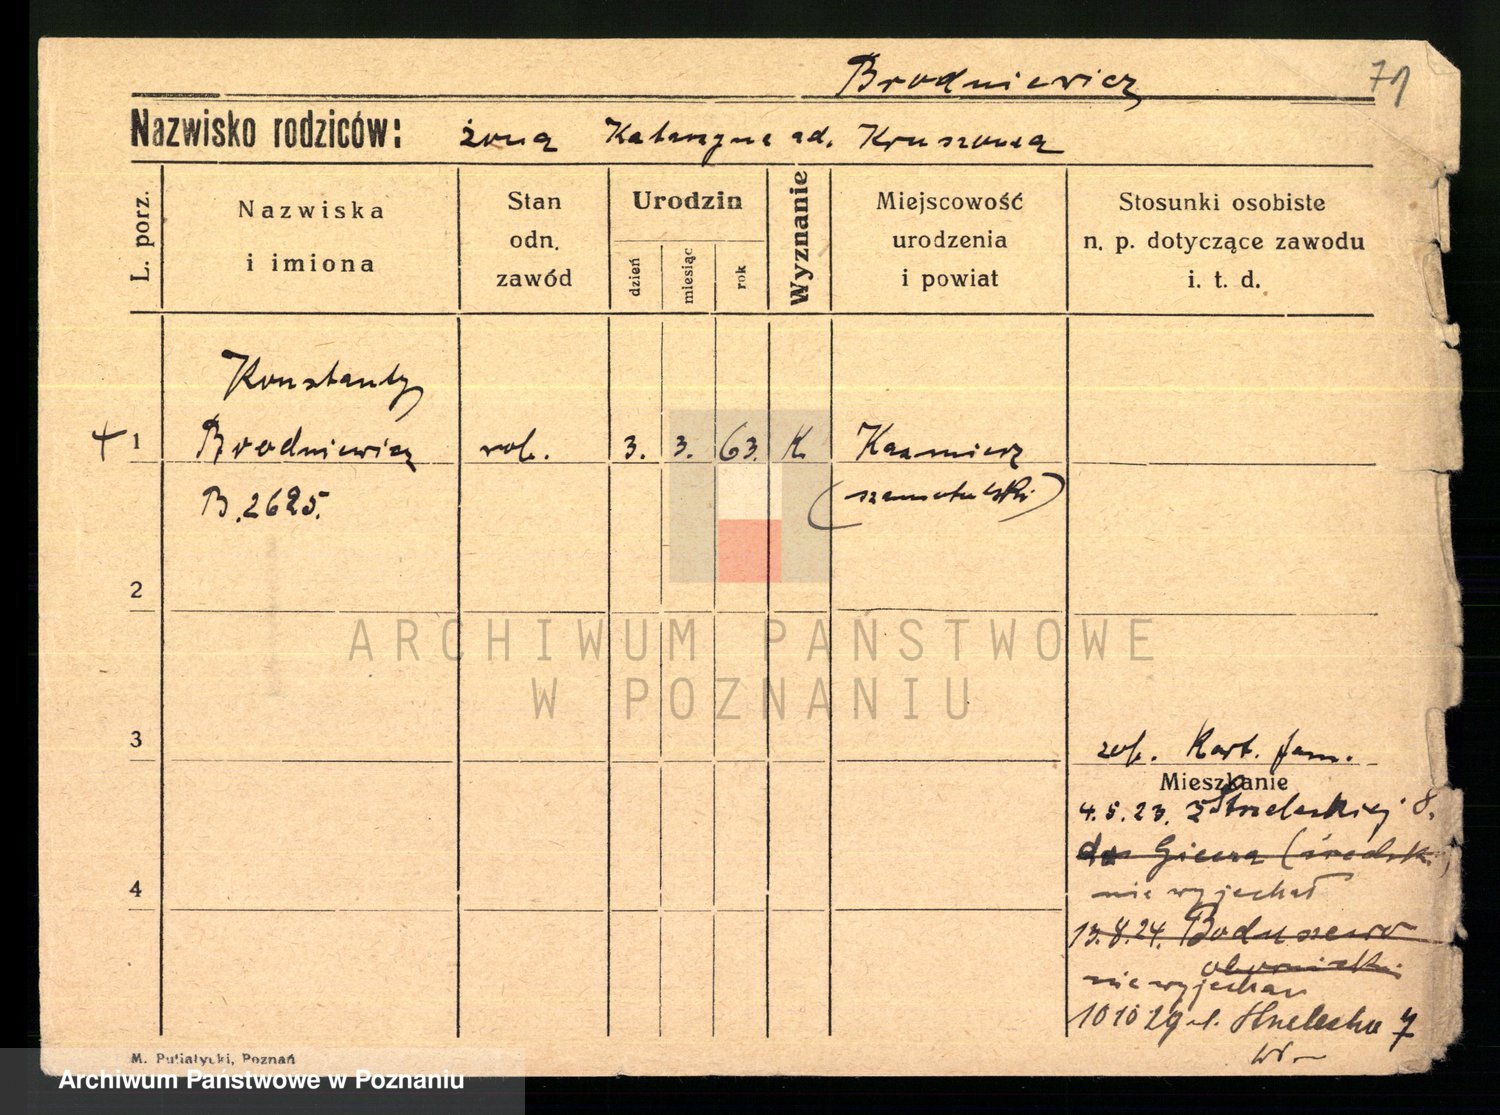 Brodniewicz
71
Nazwisko rodziców: żona Katarzyna
L. porz.
Nazwiska
i imiona
Stan
odn.
zawód
Urodzin
dzień
miesiąc
rok
Wyznanie
Miejscowość
urodzenia
i powiat
Stosunki osobiste
n. p. dotyczące zawodu
i. t. d.
Konstanty
1 Brodniewicz rob. 3. 3. 63. K. Kazmierz
B. 2625. (szamotulski)
2
ARCHIWUM PAŃSTWOWE
W POZNANIU
3
zob. Kart. fam.
Mieszkanie
4. 5. 23. Z Strzeleckiej 8.
4
do Giecza (średzki)
nie wyjechał
13. 8. 24. Boduszewo
obornicki
nie wyjechał
10 10 29 7
M. Putiatycki, Poznań
Archiwum Państwowe w Poznaniu